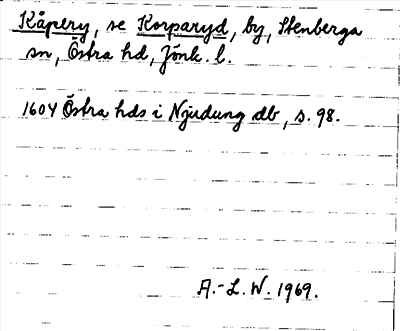 Kåpery, se Korparyd, by, Stenberga
sn, Östra hd, Jönk. l.
1604 Östra hds i Njudung db, s. 98.
A.-L. W. 1969.